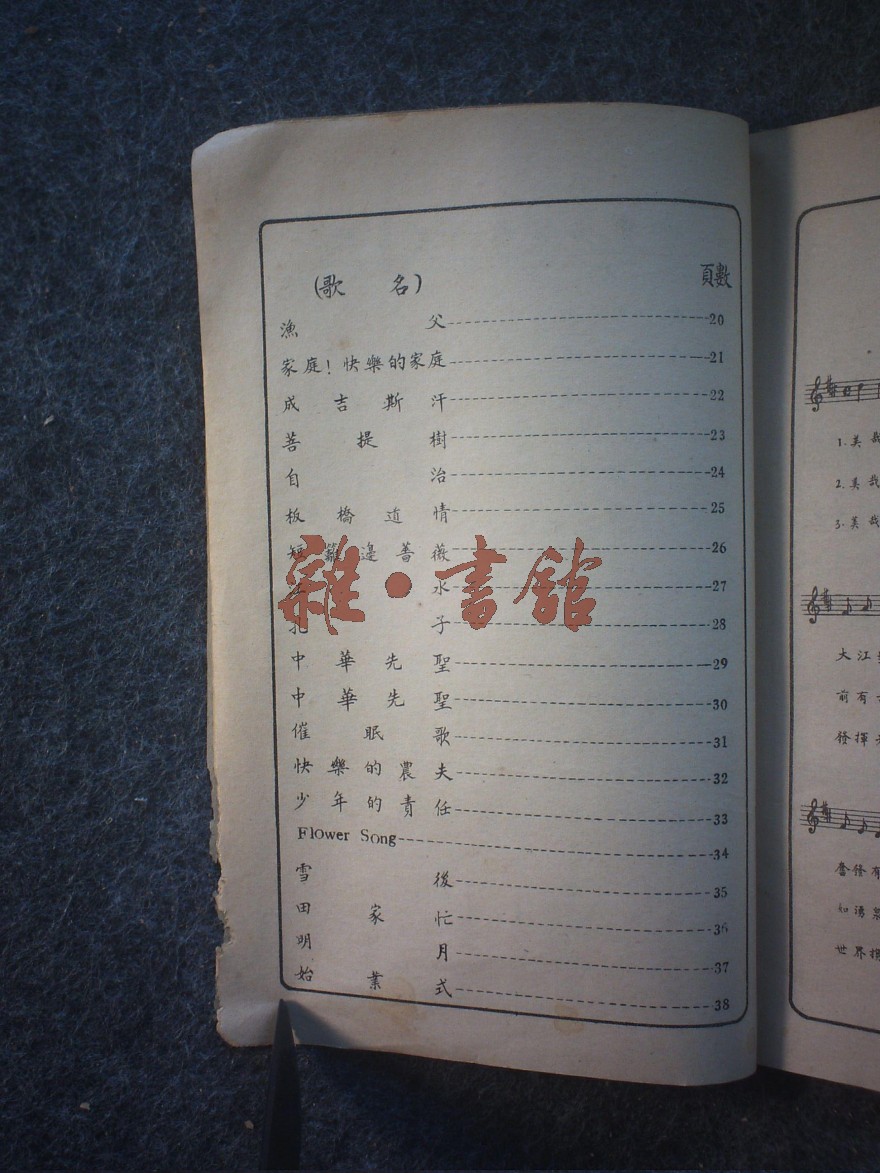 (歌名) 頁數
漁父 20
家庭!快樂的家庭 21
成吉斯汗 22
菩提樹 23
自治 24
板橋道情 25
短籬邊薔薇 26
水 27
孔子 28
中華先聖 29
中華先聖 30
催眠歌 31
快樂的農夫 32
少年的責任 33
Flower Song 34
雪後 35
田家忙 36
明月 37
始業式 38
雜·書館
1.美哉
2.美哉
3.美哉
大江
前有
發揮
奮發有
如湧
世界